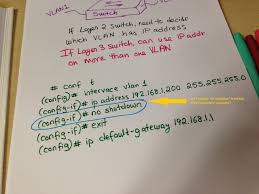 VLAN1
Switch
If Layer 2 Switch, need to decide
which VLAN has IP address
If Layer 3 Switch, can use IP addr
on more than one VLAN
# conf t
(config)# interface vlan 1
(config-if)# ip address 192.168.1.200 255.255.255.0
(config-if)# no shutdown
(config-if)# exit
(config)# ip default-gateway 192.168.1.1